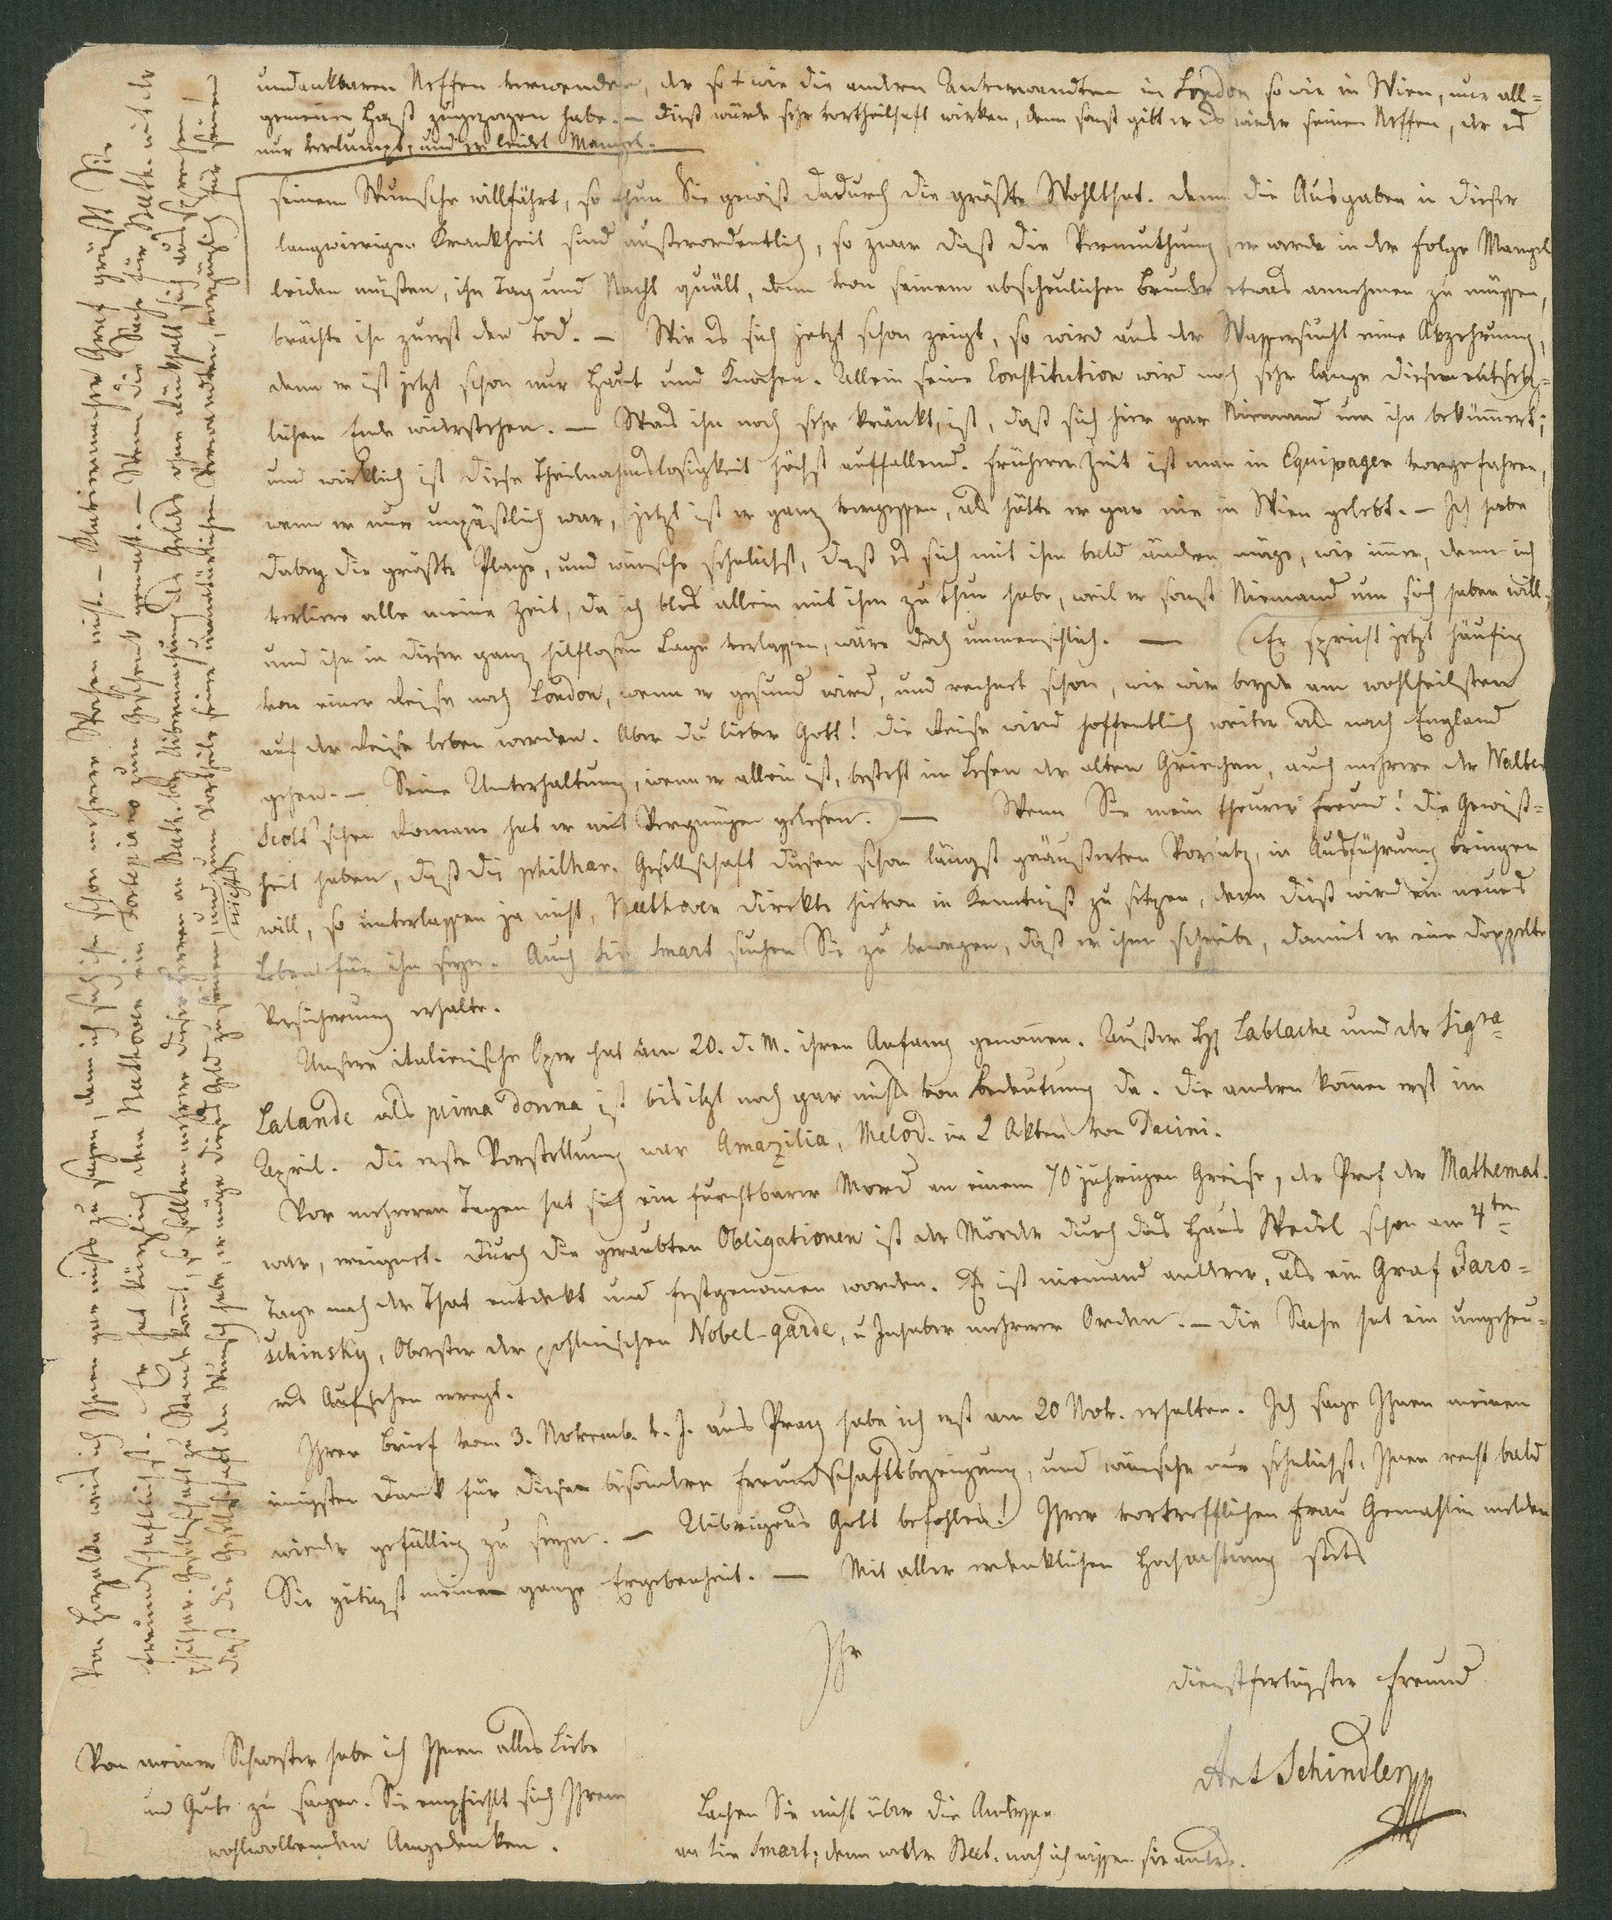 undankbaren Neffen verwenden, der so wie die andern Anverwandten in London so wie in Wien, nur all=
gemeinen Haß zugezogen habe. – Dieß würde sehr vortheilhaft wirken, denn sonst gibt er es wieder seinem Neffen, der es
nur verlumpt, und er leidet Mangel.
seinem Wunsche willfährt, so thun Sie gewiß dadurch die größte Wohlthat. denn die Ausgaben in dieser
langwierigen Krankheit sind außerordentlich, so zwar daß die Vermuthung, er werde in der Folge Mangel
leiden müßen, ihn Tag und Nacht quält, denn von seinem abscheulichen Bruder etwas annehmen zu müssen,
brächte ihn zuerst den Tod. – Wie es sich jetzt schon zeigt, so wird aus der Wassersucht eine Abzehrung,
denn er ist jetzt schon nur Haut und Knochen. Allein seine Constitution wird noch sehr lange diesem entsetz=
lichen Ende widerstehen. – Was ihn noch sehr kränkt, ist, daß sich hier gar Niemand um ihn bekümmert;
und wirklich ist diese Theilnahmslosigkeit höchst auffallend. Früherer Zeit ist man in Equipagen vorgefahren,
wenn er nur unpäßlich war, jetzt ist er ganz vergessen, als hätte er gar nie in Wien gelebt. – Ich habe
dabey die größte Plage, und wünsche sehnlichst, daß es sich mit ihm bald ändern möge, wie immer, denn ich
verliere alle meine Zeit, da ich blos allein mit ihm zu thun habe, weil er sonst Niemand um sich haben will,
und ihn in dieser ganz hilflosen Lage verlassen, wäre doch unmenschlich. – (Er spricht jetzt häufig
von einer Reise nach London, wenn er gesund wird, und rechnet schon, wie wir beyde am wohlfeilsten
auf der Reise leben werden. Aber du lieber Gott! die Reise wird hoffentlich weiter als nach England
gehen. – Seine Unterhaltung, wenn er allein ist, besteht im Lesen der alten Griechen, auch mehrere der Walter
Scott'schen Romane hat er mit Vergnügen gelesen.) – Wenn Sie mein theurer Freund! die Gewiß=
heit haben, daß die philhar. Gesellschaft diesen schon längst geäußerten Vorsatz, in Ausführung bringen
will, so unterlassen ja nicht, Beethoven direkte hievon in Kenntniß zu setzen, denn dieß wird ein neues
Leben für ihn seyn. Auch Sir Smart suchen Sie zu bewegen, daß er ihm schreibe, damit er eine doppelte
Versicherung erhalte.
Unsere italienische Oper hat am 20. d. M. ihren Anfang genomen. Außer H. Lablache und der Sigra
Lalande als prima donna ist bis itzt noch gar nichts von Bedeutung da. Die andern komen erst im
April. Die erste Vorstellung war Amazilia, Melod. in 2 Akten von Pacini.
Vor mehreren Tagen hat sich ein furchtbarer Mord an einem 70 jährigen Greise, der Prof der Mathemat.
war, ereignet. Durch die geraubten Obligationen ist der Mörder durch das Haus schon am 4ten
Tage nach der That entdekt und festgenomen worden. Es ist niemand anderer, als ein Graf Jaro=
schinsky, Oberster der pohlnischen Nobel-garde, u Inhaber mehrerer Orden. – Die Sache hat ein ungeheu=
res Aufsehen erregt.
Ihren Brief vom 3. Novemb. v. J. aus Prag habe ich erst am 20 Nov. erhalten. Ich sage Ihnen meinen
innigsten Dank für diesen besondern Freundschaftsbezeigung, und wünsche nur sehnlichst, Ihnen recht bald
wieder gefällig zu seyn. – Uibrigens Gott befohlen! Ihrer vortrefflichen Frau Gemahlin melden
Sie gütigst meine ganze Ergebenheit. – Mit aller erdenklichen Hochachtung stets
Ihr
dienstfertigster Freund
Ant Schindler
Von meiner Schwester habe ich Ihnen alles Liebe
und Gute zu sagen. Sie empfiehlt sich Ihrem
wohlwollenden Angedenken.
Lachen Sie nicht über die Adresse
an Sir Smart; denn weder Beet. noch ich wissen sie anders.
Von weiß ich Ihnen gar nichts zu sagen, denn ich sah ihn schon mehrere Wochen nicht. – Claviermacher Graf grüßt Sie
freundschaftlichst. Er hat kürzlich dem Beethoven ein Fortepiano zum Geschenk gemacht. – Wenn die Sache für Beeth. mit der
philhar. Gesellschaft zu Stande komt, so sollten mehrere dieser Herren an Beeth. bey Übermachung des Geldes
daß die Gesellschaft den Wunsch habe, er möge dieses Geld zu seinem, und zum Vortheile seiner Verwandten, vorzüglich für seinen
(nicht)